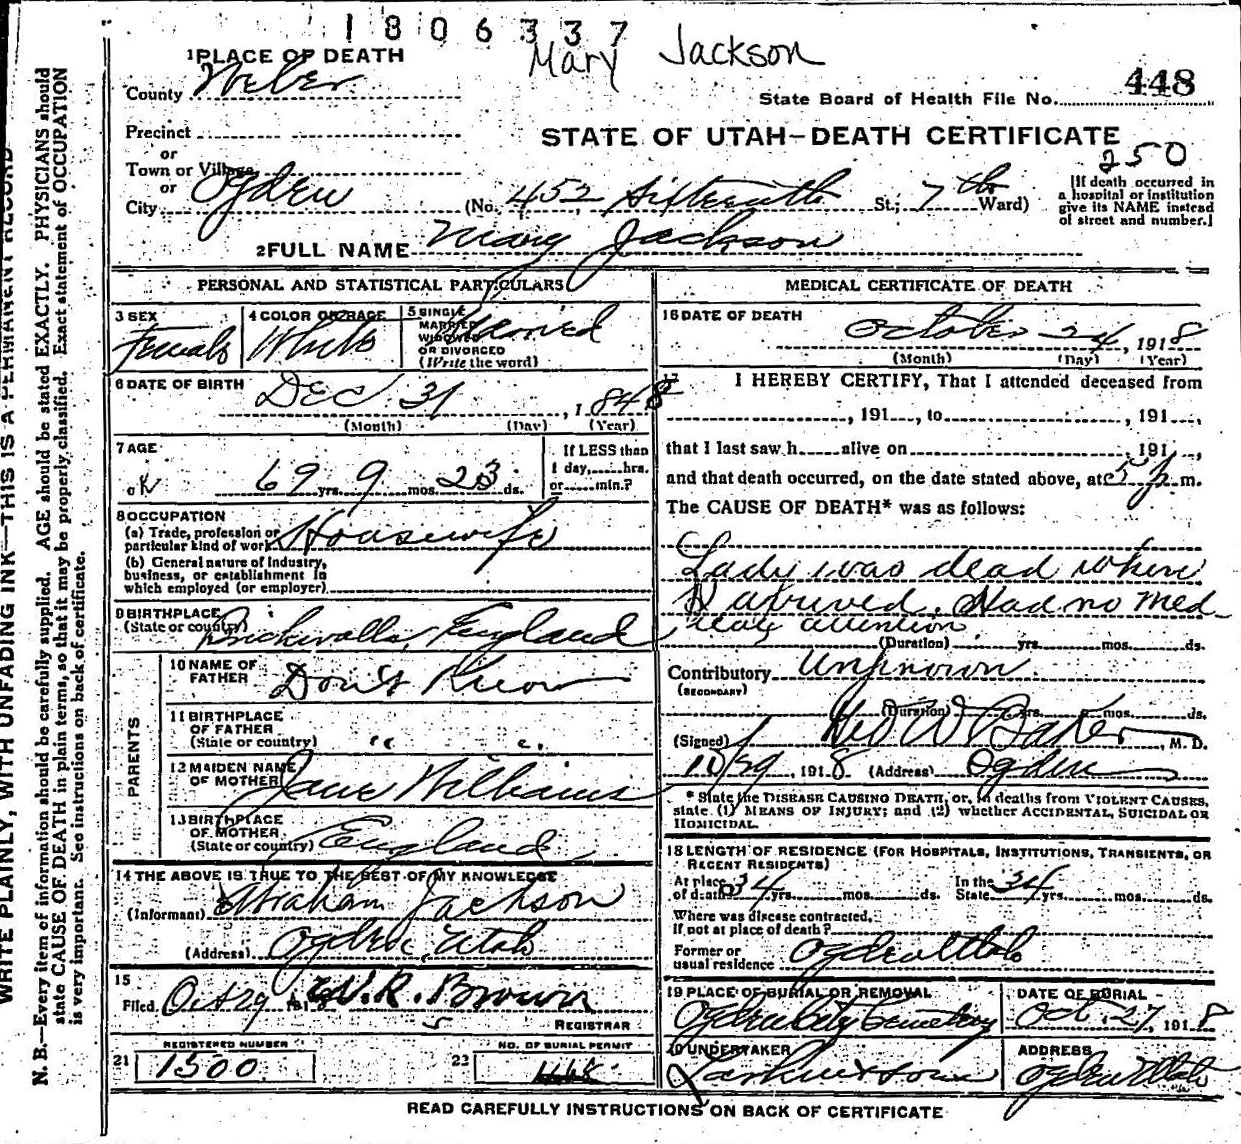 1806337
Mary Jackson
1 PLACE OF DEATH
County Weber
448
State Board of Health File No.
Precinct
STATE OF UTAH—DEATH CERTIFICATE
or
Town or Village
250
or
City Ogden (No. 452 Sixteenth St.; 7th Ward)
[If death occurred in
a hospital or institution
give its NAME instead
of street and number.]
2 FULL NAME Mary Jackson
PERSONAL AND STATISTICAL PARTICULARS
3 SEX
Female
4 COLOR OR RACE
White
5 SINGLE
MARRIED
WIDOWED
OR DIVORCED
(Write the word)
Married
6 DATE OF BIRTH
Dec 31, 1848
(Month) (Day) (Year)
7 AGE
If LESS than
1 day,......hrs.
or......min.?
OK 69 yrs. 9 mos. 23 ds.
8 OCCUPATION
(a) Trade, profession or
particular kind of work Housewife
(b) General nature of industry,
business, or establishment in
which employed (or employer)
9 BIRTHPLACE
(State or country) England
PARENTS
10 NAME OF
FATHER Don't Know
11 BIRTHPLACE
OF FATHER
(State or country) " "
12 MAIDEN NAME
OF MOTHER Jane Williams
13 BIRTHPLACE
OF MOTHER
(State or country) England
14 THE ABOVE IS TRUE TO THE BEST OF MY KNOWLEDGE
(Informant) Abraham Jackson
(Address) Ogden, Utah
15
Filed Oct 29 1918 W. R. Brown
REGISTRAR
21 REGISTERED NUMBER
1500
22 NO. OF BURIAL PERMIT
MEDICAL CERTIFICATE OF DEATH
16 DATE OF DEATH
October 24, 1918
(Month) (Day) (Year)
17 I HEREBY CERTIFY, That I attended deceased from
, 191 , to , 191 ,
that I last saw h alive on , 191 ,
and that death occurred, on the date stated above, at 5 p. m.
The CAUSE OF DEATH* was as follows:
Lady was dead when
I arrived, Had no med
ical attention
(Duration) yrs. mos. ds.
Contributory Unknown
(SECONDARY)
(Duration) yrs. mos. ds.
(Signed) Geo W Baker, M. D.
10/29, 1918 (Address) Ogden
* State the DISEASE CAUSING DEATH, or, in deaths from VIOLENT CAUSES,
state (1) MEANS OF INJURY; and (2) whether ACCIDENTAL, SUICIDAL OR
HOMICIDAL.
18 LENGTH OF RESIDENCE (FOR HOSPITALS, INSTITUTIONS, TRANSIENTS, OR
RECENT RESIDENTS)
At place
of death 34 yrs. mos. ds.
In the
State 34 yrs. mos. ds.
Where was disease contracted,
If not at place of death?
Former or
usual residence Ogden Utah
19 PLACE OF BURIAL OR REMOVAL
Ogden City Cemetery
DATE OF BURIAL
Oct. 27, 1918
20 UNDERTAKER
Larkin & Sons
ADDRESS
Ogden Utah
READ CAREFULLY INSTRUCTIONS ON BACK OF CERTIFICATE
WRITE PLAINLY, WITH UNFADING INK—THIS IS A PERMANENT RECORD
N. B.—Every item of information should be carefully supplied. AGE should be stated EXACTLY. PHYSICIANS should
state CAUSE OF DEATH in plain terms, so that it may be properly classified. Exact statement of OCCUPATION
is very important. See instructions on back of certificate.